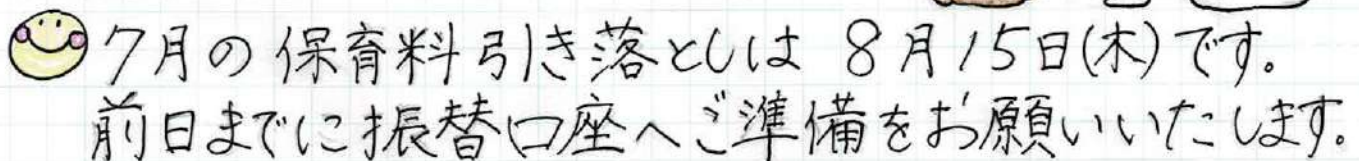 7月の保育料引き落としは 8月15日(木)です。
前日までに振替口座へご準備をお願いいたします。